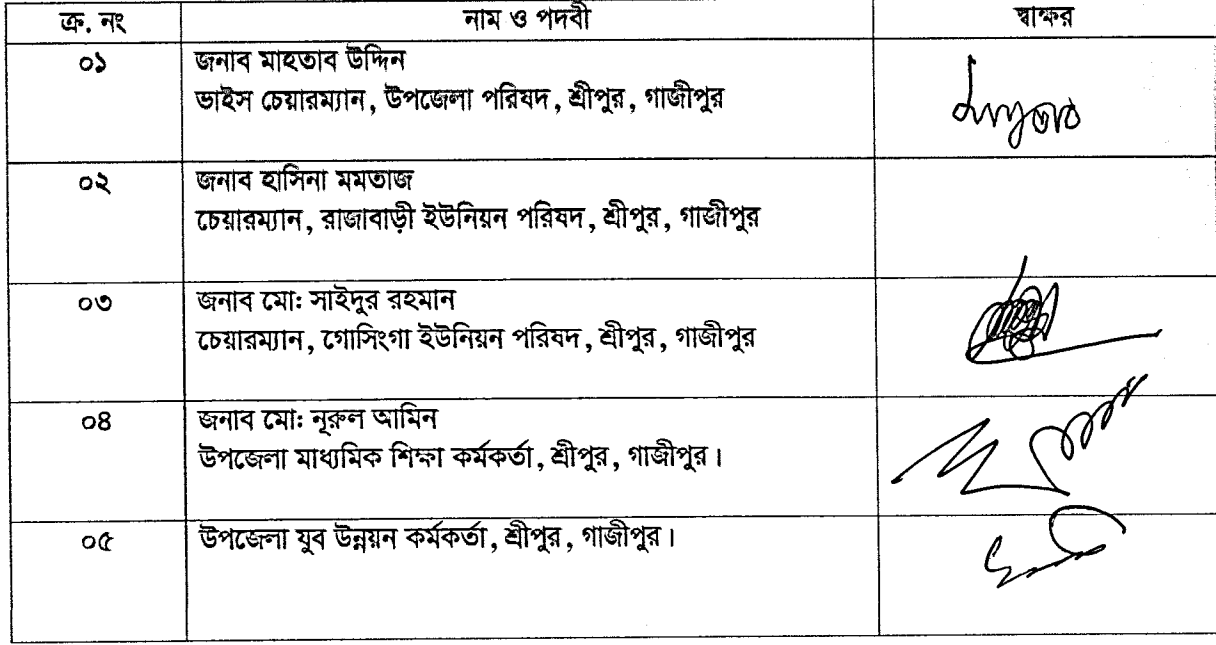 ক্র. নং নাম ও পদবী স্বাক্ষর
০১ জনাব মাহতাব উদ্দিন
ভাইস চেয়ারম্যান, উপজেলা পরিষদ, শ্রীপুর, গাজীপুর
০২ জনাব হাসিনা মমতাজ
চেয়ারম্যান, রাজাবাড়ী ইউনিয়ন পরিষদ, শ্রীপুর, গাজীপুর
০৩ জনাব মোঃ সাইদুর রহমান
চেয়ারম্যান, গোসিংগা ইউনিয়ন পরিষদ, শ্রীপুর, গাজীপুর
০৪ জনাব মোঃ নূরুল আমিন
উপজেলা মাধ্যমিক শিক্ষা কর্মকর্তা, শ্রীপুর, গাজীপুর।
০৫ উপজেলা যুব উন্নয়ন কর্মকর্তা, শ্রীপুর, গাজীপুর।